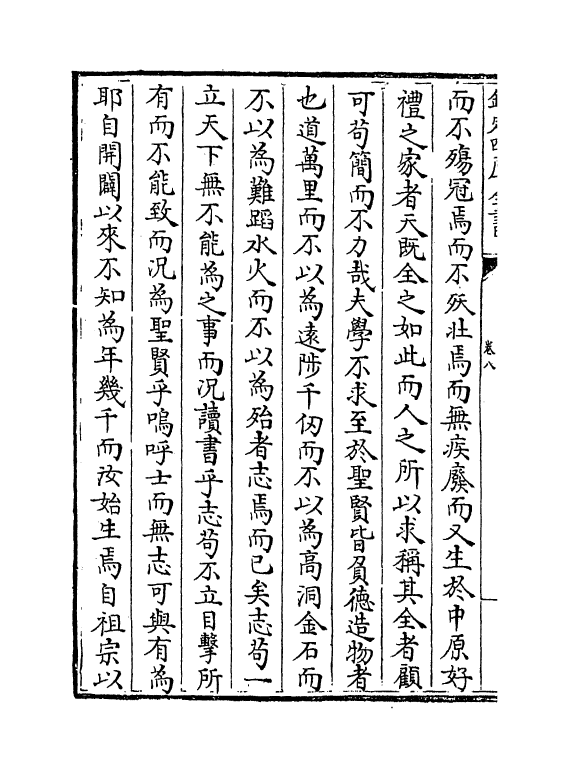 欽定四庫全書
卷八
而不殤冠焉而不殀壯焉而無疾癈而又生於中原好
禮之家者天既全之如此而人之所以求稱其全者顧
可苟簡而不力哉夫學不求至於聖賢皆負德造物者
也道萬里而不以為遠陟千仞而不以為高洞金石而
不以為難蹈水火而不以為殆者志焉而已矣志苟一
立天下無不能為之事而況讀書乎志苟不立目擊所
有而不能致而況為聖賢乎嗚呼士而無志可與有為
耶自開闢以來不知為年幾千而汝始生焉自祖宗以